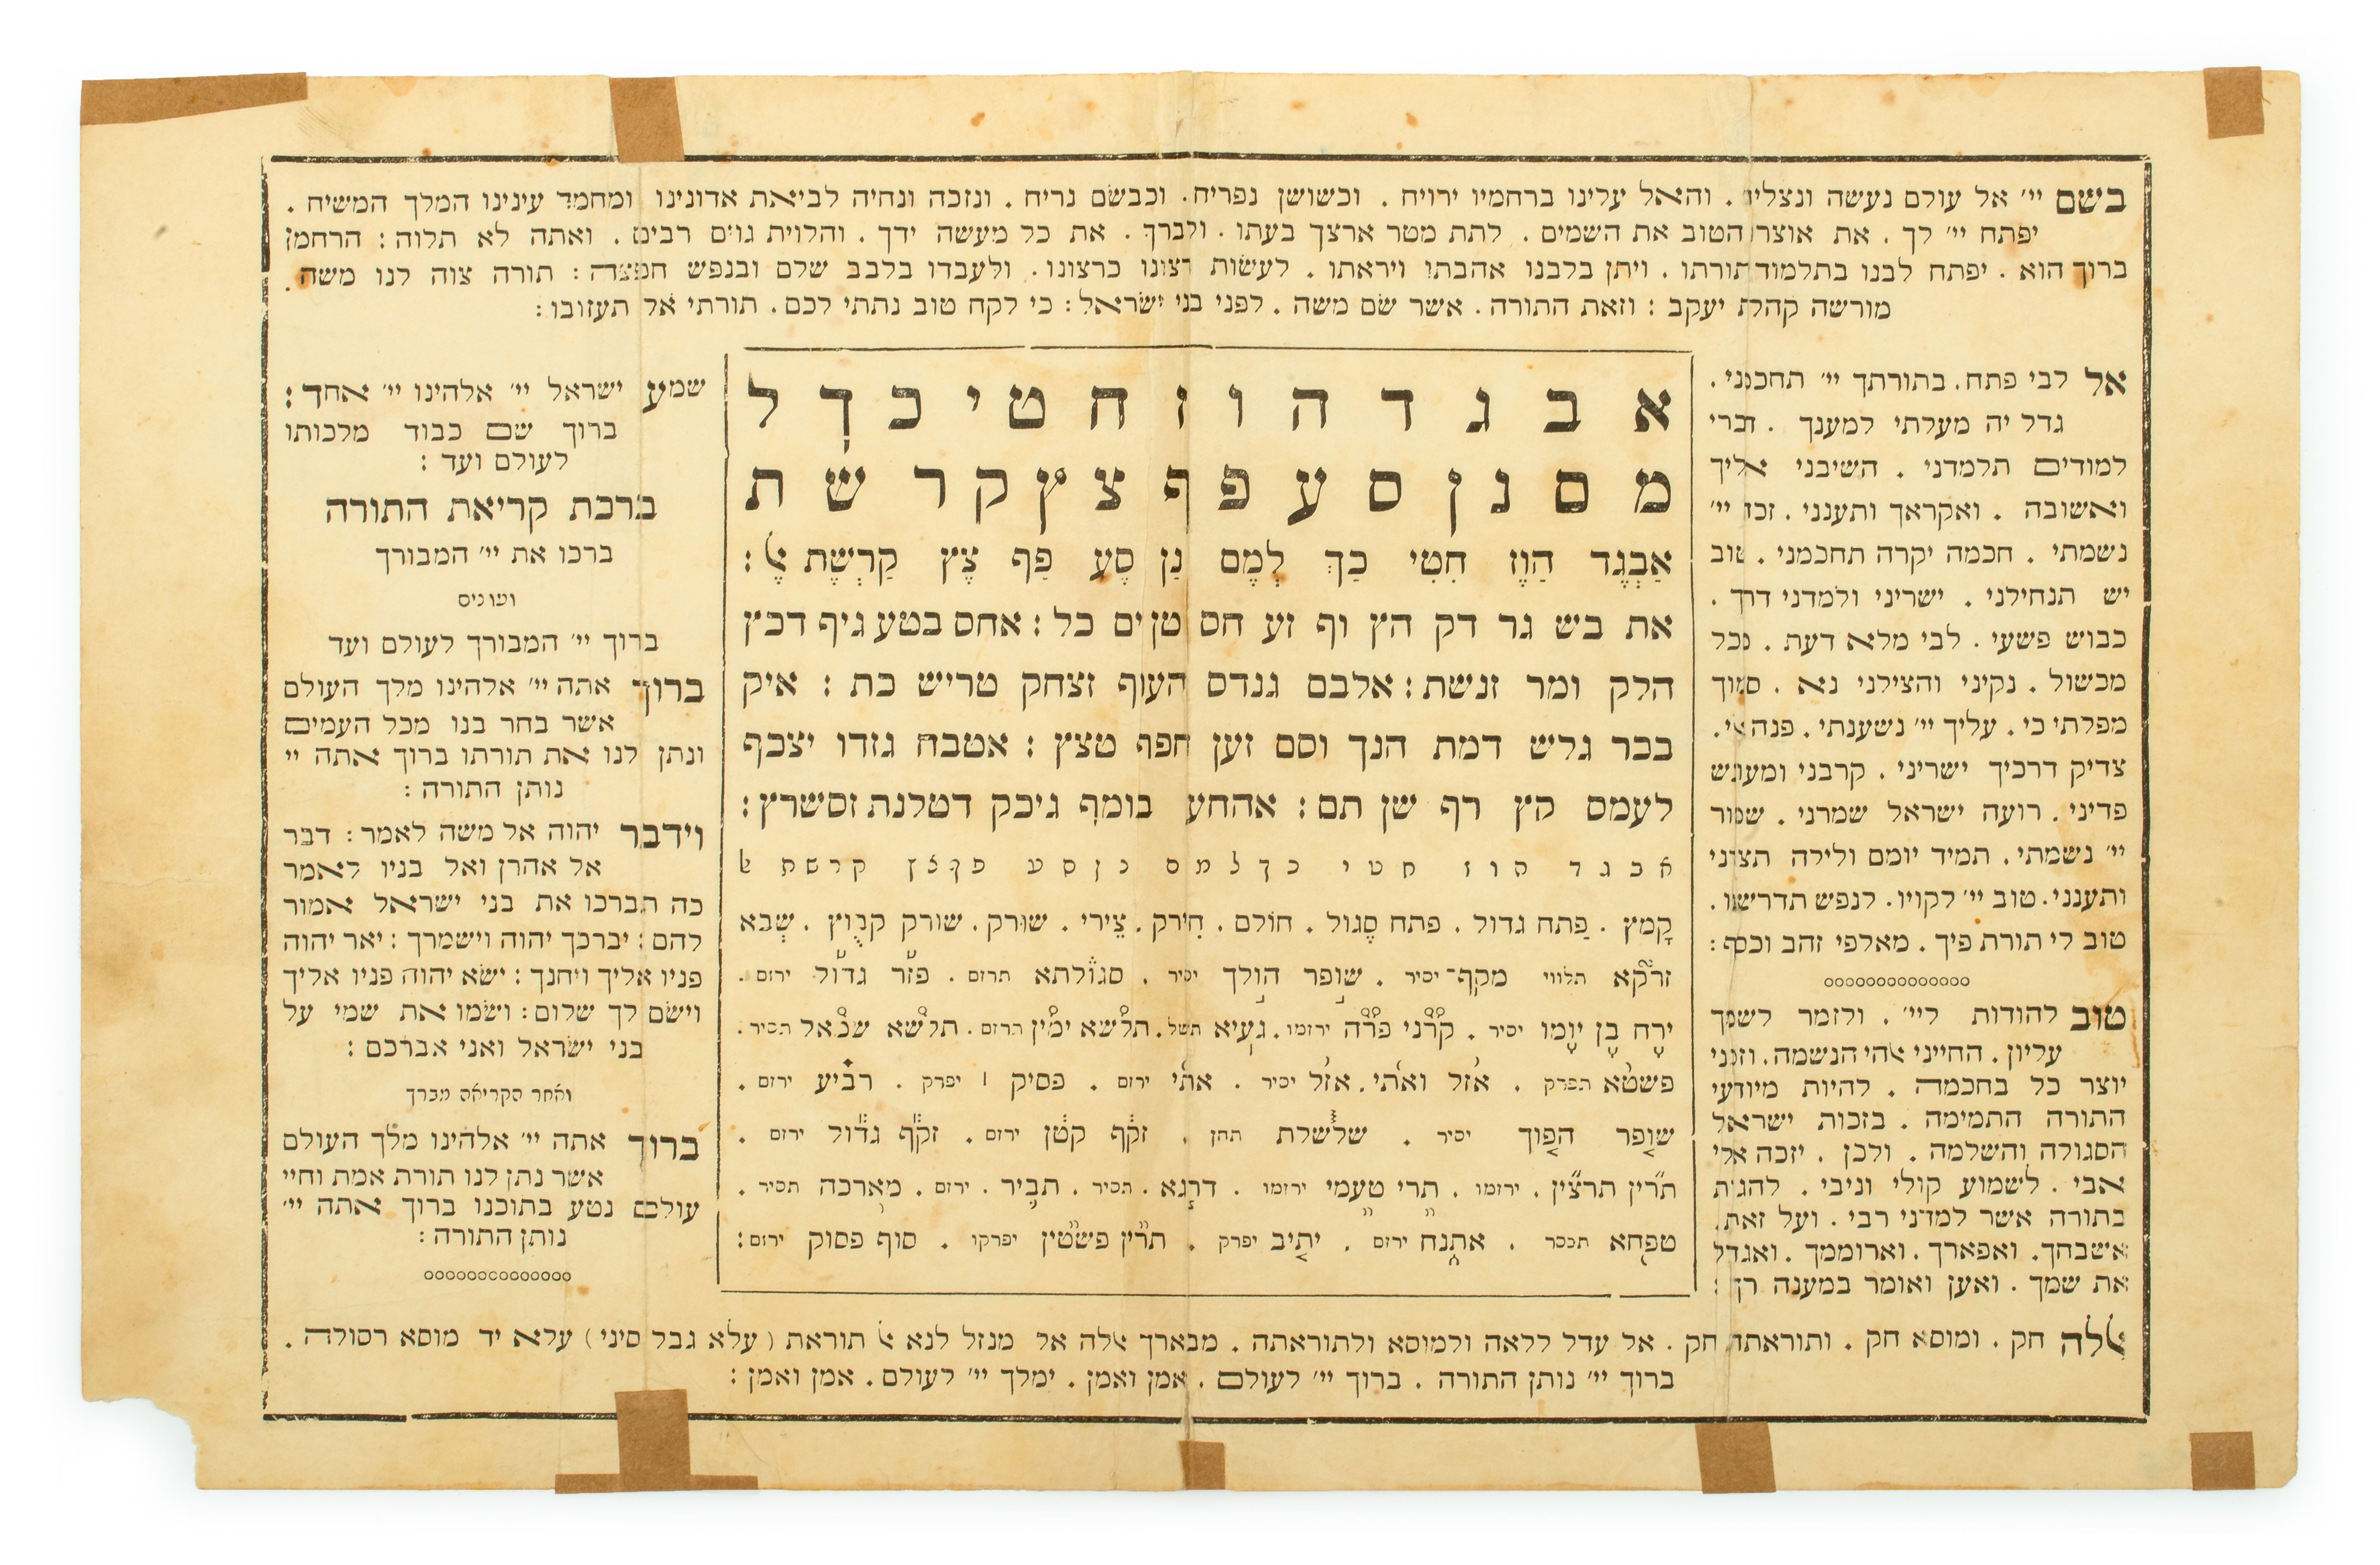 בשם יי׳ אל עולם נעשה ונצליח . והאל עלינו ברחמיו ירויח . וכשושן נפריח . וכבשם נריח . ונזכה ונחיה לביאת אדונינו ומחמד עינינו המלך המשיח .
יפתח יי׳ לך . את אוצרו הטוב את השמים . לתת מטר ארצך בעתו . ולברך . את כל מעשה ידך . והלוית גוים רבים . ואתה לא תלוה : הרחמן
ברוך הוא . יפתח לבנו בתלמוד תורתו . ויתן בלבנו אהבתו ויראתו . לעשות רצונו כרצונו . ולעבדו בלבב שלם ובנפש חפצה : תורה צוה לנו משה .
מורשה קהלת יעקב : וזאת התורה . אשר שם משה . לפני בני ישראל : כי לקח טוב נתתי לכם . תורתי אל תעזובו :
אל לבי פתח . בתורתך יי׳ תחכמני .
גדל יה מעלתי למענך . דברי
למודים תלמדני . השיבני אליך
ואשובה . ואקראך ותענני . זכה יי׳
נשמתי . חכמה יקרה תחכמני . טוב
יש תנחילני . ישריני ולמדני דרך .
כבוש פשעי . לבי מלא דעת . מכל
מכשול . נקיני והצילני נא . סמוך
מפלתי כי . עליך יי׳ נשענתי . פנה אי .
צדיק דרכיך ישריני . קרבני ומעונש
פדיני . רועה ישראל שמרני . שמור
יי׳ נשמתי . תמיד יומם ולילה תצרני
ותענני . טוב יי׳ לקויו . לנפש תדרשנו .
טוב לי תורת פיך . מאלפי זהב וכסף :
טוב להודות ליי׳ . ולזמר לשמך
עליון . החייני אהי הנשמה . וזנני
יוצר כל בחכמה . להיות מיודעי
התורה התמימה . בזכות ישראל
הסגולה והשלמה . ולכן . יזכה אלי
אבי . לשמוע קולי וניבי . להגות
בתורה אשר למדני רבי . ועל זאת .
אשבחך . ואפארך . וארוממך . ואגדל
את שמך . ואען ואומר במענה רך :
א ב ג ד ה ו ז ח ט י כ ך ל
מ ם נ ן ס ע פ ף צ ץ ק ר ש ת
אַבְגֶד הַוֶז חִטִי כַךְ לְמֶם נַן סֶע פַף צֶץ קַרְשֶת אֶל :
את בש גר דק הץ וף זע חס טן ים כל : אחס בטע גיף דכץ
הלק ומר זנשת : אלבם גנדס העוף זצחק טריש כת : איק
בכר גלש דמת הנך וסם זען חפף טצץ : אטבח גזדו יצכף
לעמס קץ רף שן תם : אהחע בומף גיכק דטלנת זסשרץ :
א ב ג ד ה ו ז ח ט י כ ך ל מ ם נ ן ס ע פ ף צ ץ ק ר ש ת אל
קָמץ . פַתח גדול . פתח סֶגול . חוֹלם . חִירק . צֵירי . שוּרק . שורק קבֻוץ . שְבא
זרקא תלווי מקף־ יסיר . שופר הולך יסיר . סגולתא תרום . פזר גדול ירום .
ירח בן יומו יסיר . קרני פרה ירומו . געיא תטל . תלשא ימין תרום . תלשא שמאל תסיר .
פשטא תפרק . אזל ואתי . אזל יסיר . אתי ירום . פסיק ׀ יפרק . רביע ירום .
שופר הפוך יסיר . שלשלת תחן . זקף קטן ירום . זקף גדול ירום .
תרין תרצין . ירומו . תרי טעמי ירומו . דרגא . תסיר . תביר . ירום . מארכה תסיר .
טפחא תכסר . אתנח ירום . יתיב יפרק . תרין פשטין יפרקו . סוף פסוק ירום :
שמע ישראל יי׳ אלהינו יי׳ אחד :
ברוך שם כבוד מלכותו
לעולם ועד :
ברכת קריאת התורה
ברכו את יי׳ המבורך
ועונים
ברוך יי׳ המבורך לעולם ועד
ברוך אתה יי׳ אלהינו מלך העולם
אשר בחר בנו מכל העמים
ונתן לנו את תורתו ברוך אתה יי׳
נותן התורה :
וידבר יהוה אל משה לאמר : דבר
אל אהרן ואל בניו לאמר
כה תברכו את בני ישראל אמור
להם : יברכך יהוה וישמרך : יאר יהוה
פניו אליך ויחנך : ישא יהוה פניו אליך
וישם לך שלום : ושמו את שמי על
בני ישראל ואני אברכם :
ואחר הקריאה מברך
ברוך אתה יי׳ אלהינו מלך העולם
אשר נתן לנו תורת אמת וחיי
עולם נטע בתוכנו ברוך אתה יי׳
נותן התורה :
אלה חק . ומוסא חק . ותוראתה חק . אל עדל ללאה ולמוסא ולתוראתה . מבארך אלה אל מנזל לנא אל תוראת ( עלא גבל סיני ) עלא יד מוסא רסולה .
ברוך יי׳ נותן התורה . ברוך יי׳ לעולם . אמן ואמן . ימלך יי׳ לעולם . אמן ואמן :